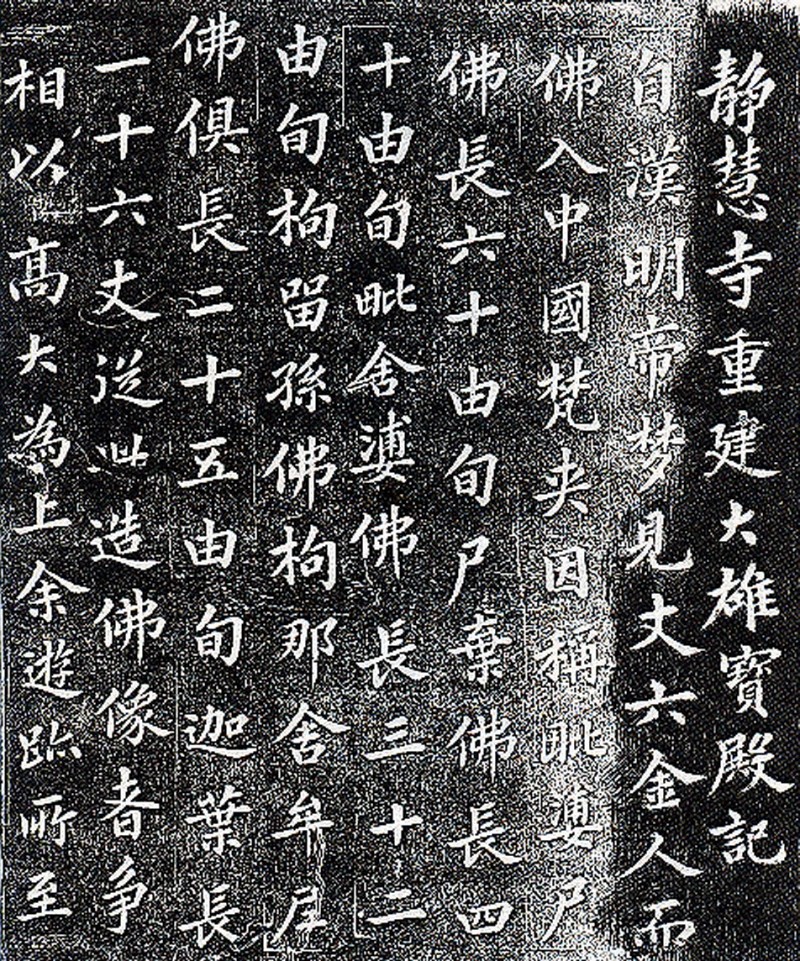 静慧寺重建大雄寶殿記
自漢明帝梦見丈六金人而
佛入中國梵夾因稱毗婆尸
佛長六十由旬尸棄佛長四
十由旬毗舍婆佛長三十二
由旬拘留孫佛拘那舍牟尼
佛俱長二十五由旬迦葉長
一十六丈從此造佛像者爭
相以髙大為上余遊跡所至